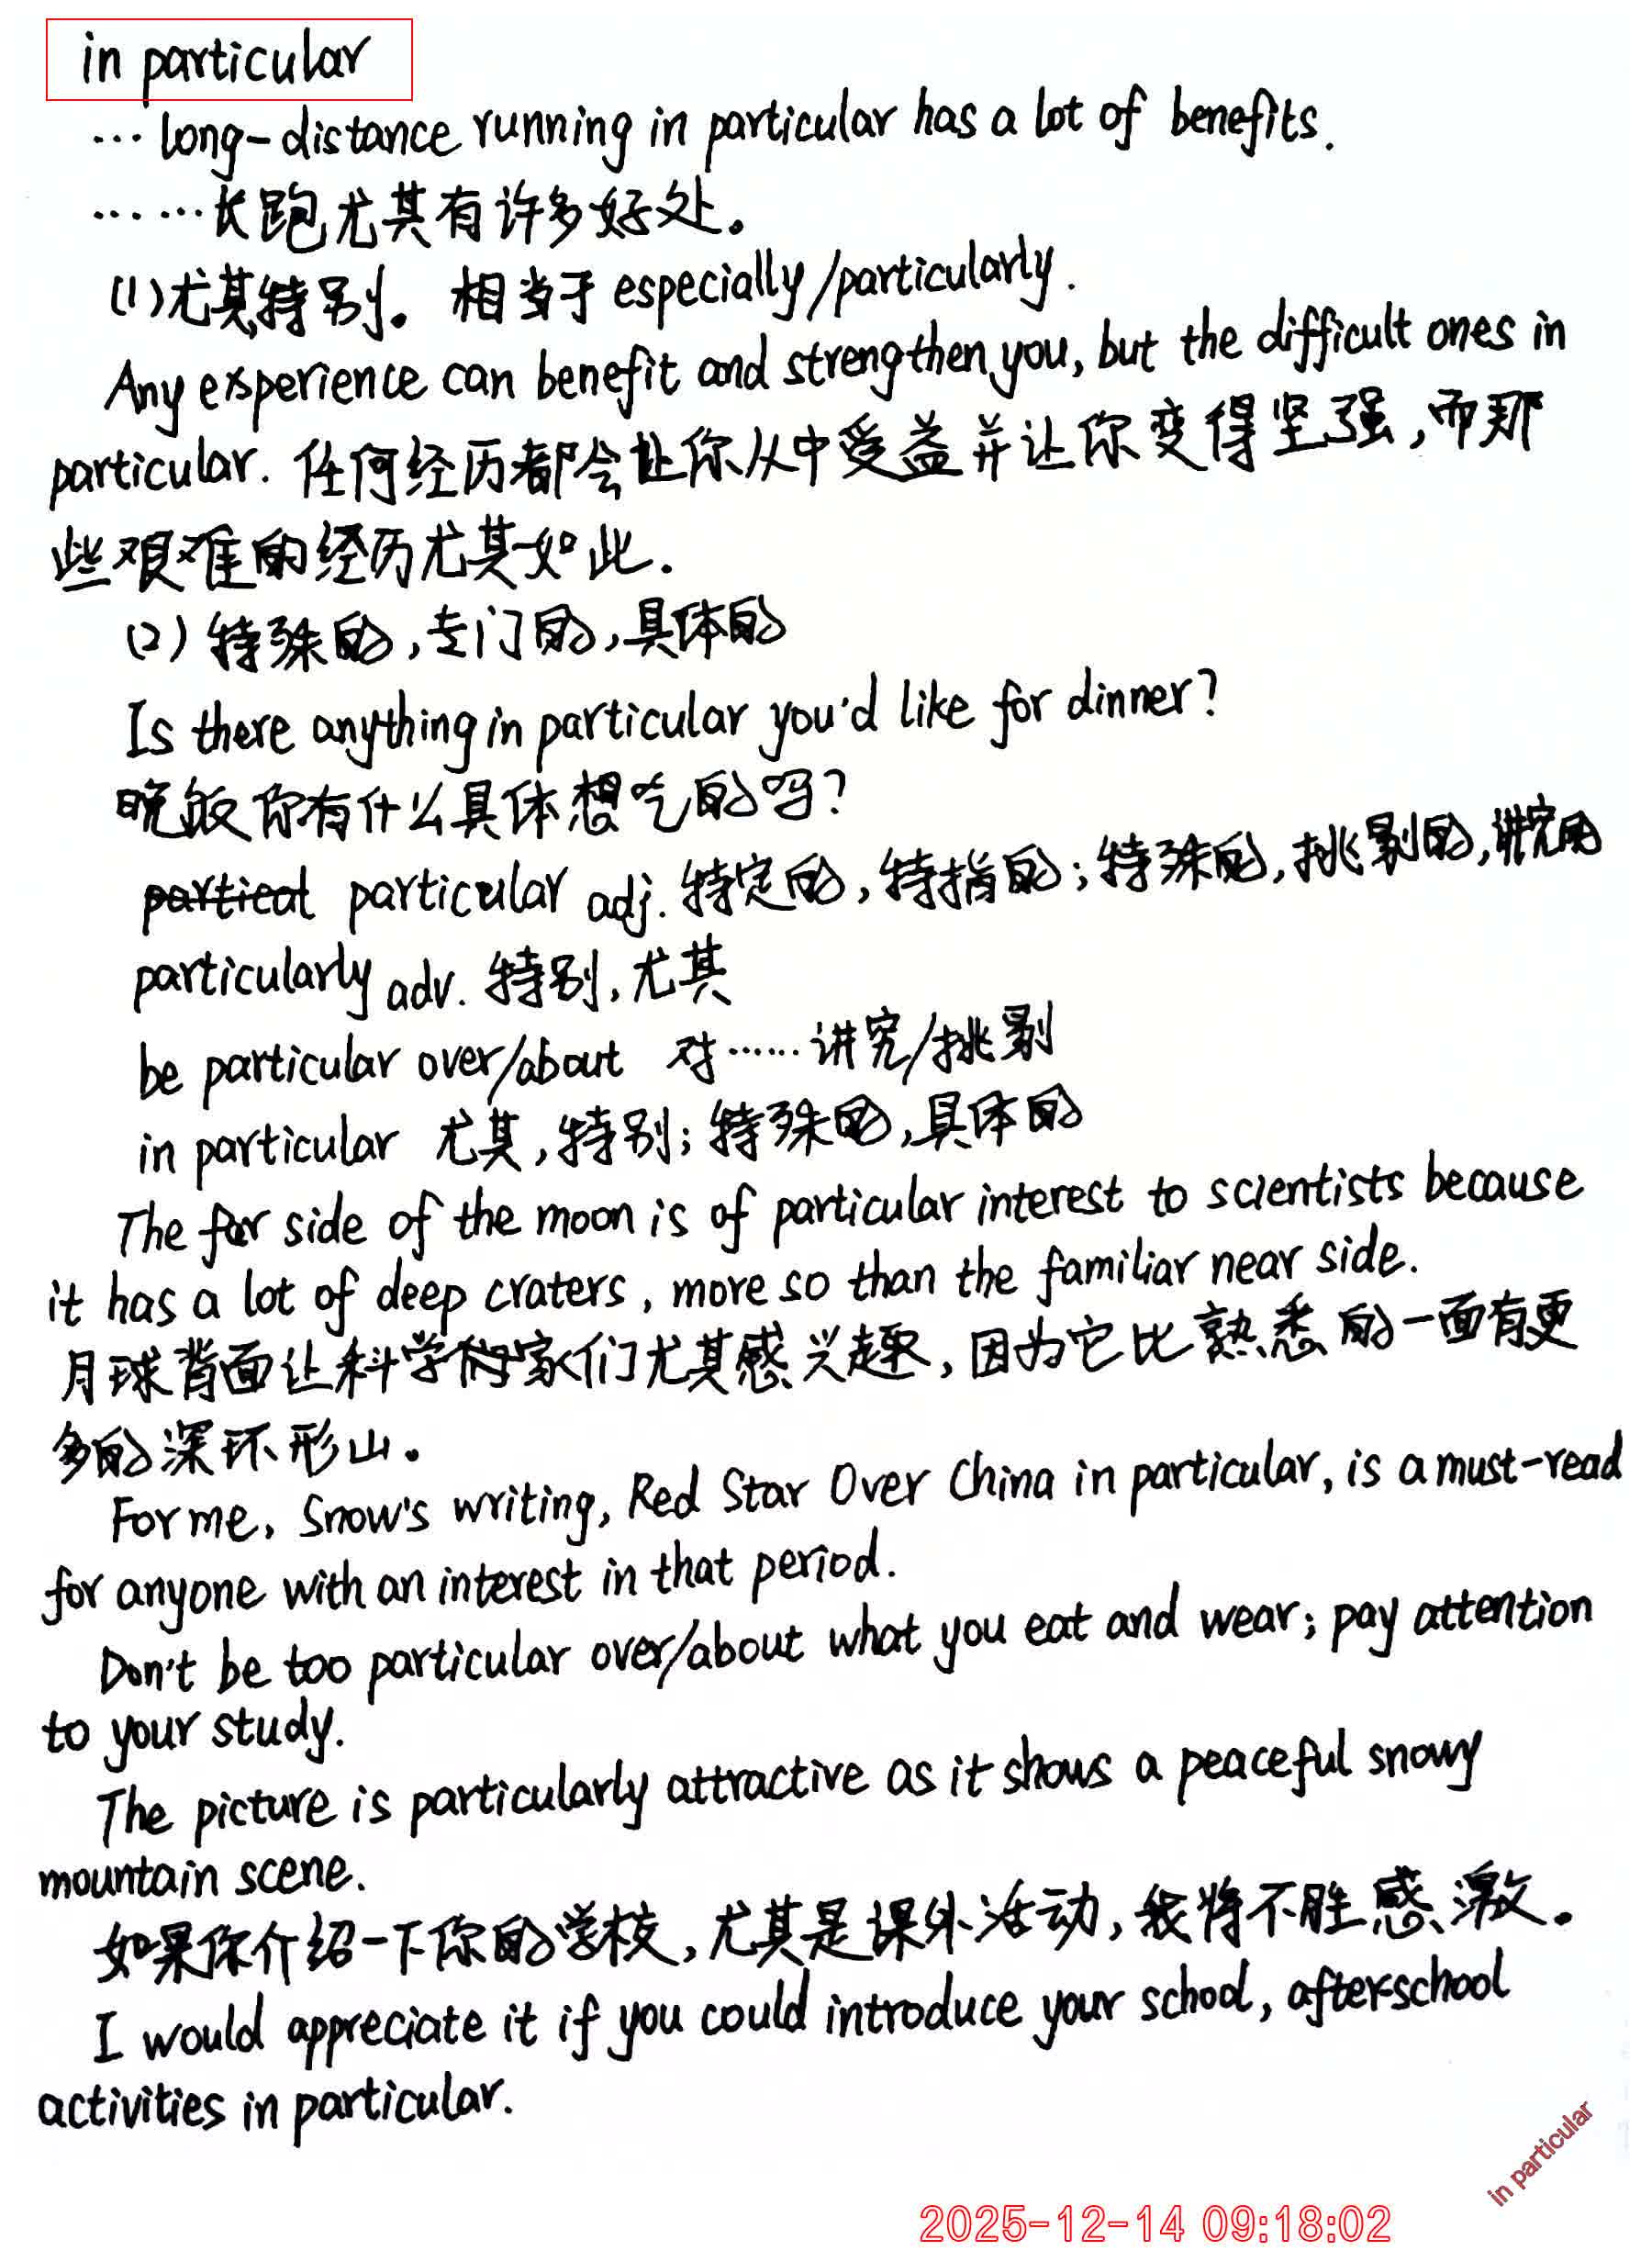 in particular
… long-distance running in particular has a lot of benefits.
……长跑尤其有许多好处。
(1)尤其,特别。 相当于 especially/particularly.
Any experience can benefit and strengthen you, but the difficult ones in
particular. 任何经历都会让你从中受益并让你变得坚强,而那
些艰难的经历尤其如此.
(2) 特殊的,专门的,具体的
Is there anything in particular you'd like for dinner?
晚饭你有什么具体想吃的吗?
particular adj. 特定的,特指的;特殊的,挑剔的,讲究的
particularly adv. 特别,尤其
be particular over/about 对……讲究/挑剔
in particular 尤其,特别;特殊的,具体的
The far side of the moon is of particular interest to scientists because
it has a lot of deep craters, more so than the familiar near side.
月球背面让科学家们尤其感兴趣,因为它比熟悉的一面有更
多的深环形山。
For me, Snow's writing, Red Star Over China in particular, is a must-read
for anyone with an interest in that period.
Don't be too particular over/about what you eat and wear; pay attention
to your study.
The picture is particularly attractive as it shows a peaceful snowy
mountain scene.
如果你介绍一下你的学校,尤其是课外活动,我将不胜感激。
I would appreciate it if you could introduce your school, after-school
activities in particular.
in particular
2025-12-14 09:18:02